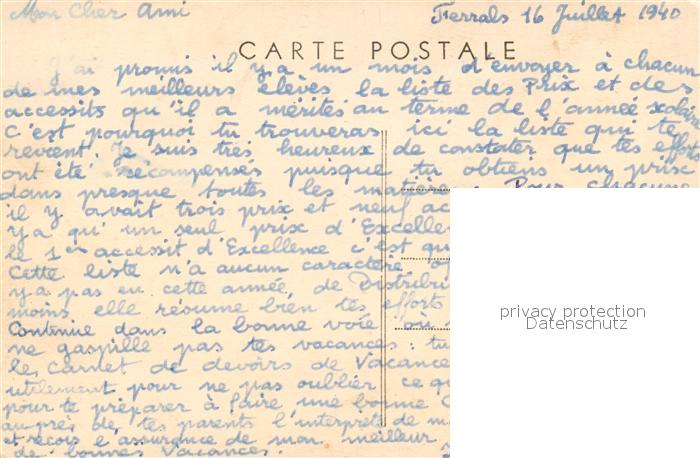 Mon Cher Ami
Ferrals 16 Juillet 1940
CARTE POSTALE
J'ai promis il y a un mois d'envoyer à chacun
de mes meilleurs élèves la liste des Prix et des
accessits qu'il a mérités au terme de l'année scolaire
C'est pourquoi tu trouveras ici la liste qui te
revient. Je suis très heureux de constater que tes efforts
ont été récompensés puisque tu obtiens un prix
dans presque toutes les Pour chacune
il y avait trois prix et neuf
y a qu'un seul prix d'Excellen
le 1er accessit d'Excellence c'est qu
Cette liste n'a aucun caractère of
y a pas eu cette année, de Distribu
moins elle résume bien tes efforts
Continue dans la bonne voie où
ne gaspille pas tes vacances : tu
le Carnet de devoirs de Vacance
utilement pour ne pas oublier ce qu
pour te préparer à faire une bonne
auprès de tes parents l'interprète de m
et reçois l'assurance de mon meilleur
de bonnes Vacances.
privacy protection
Datenschutz